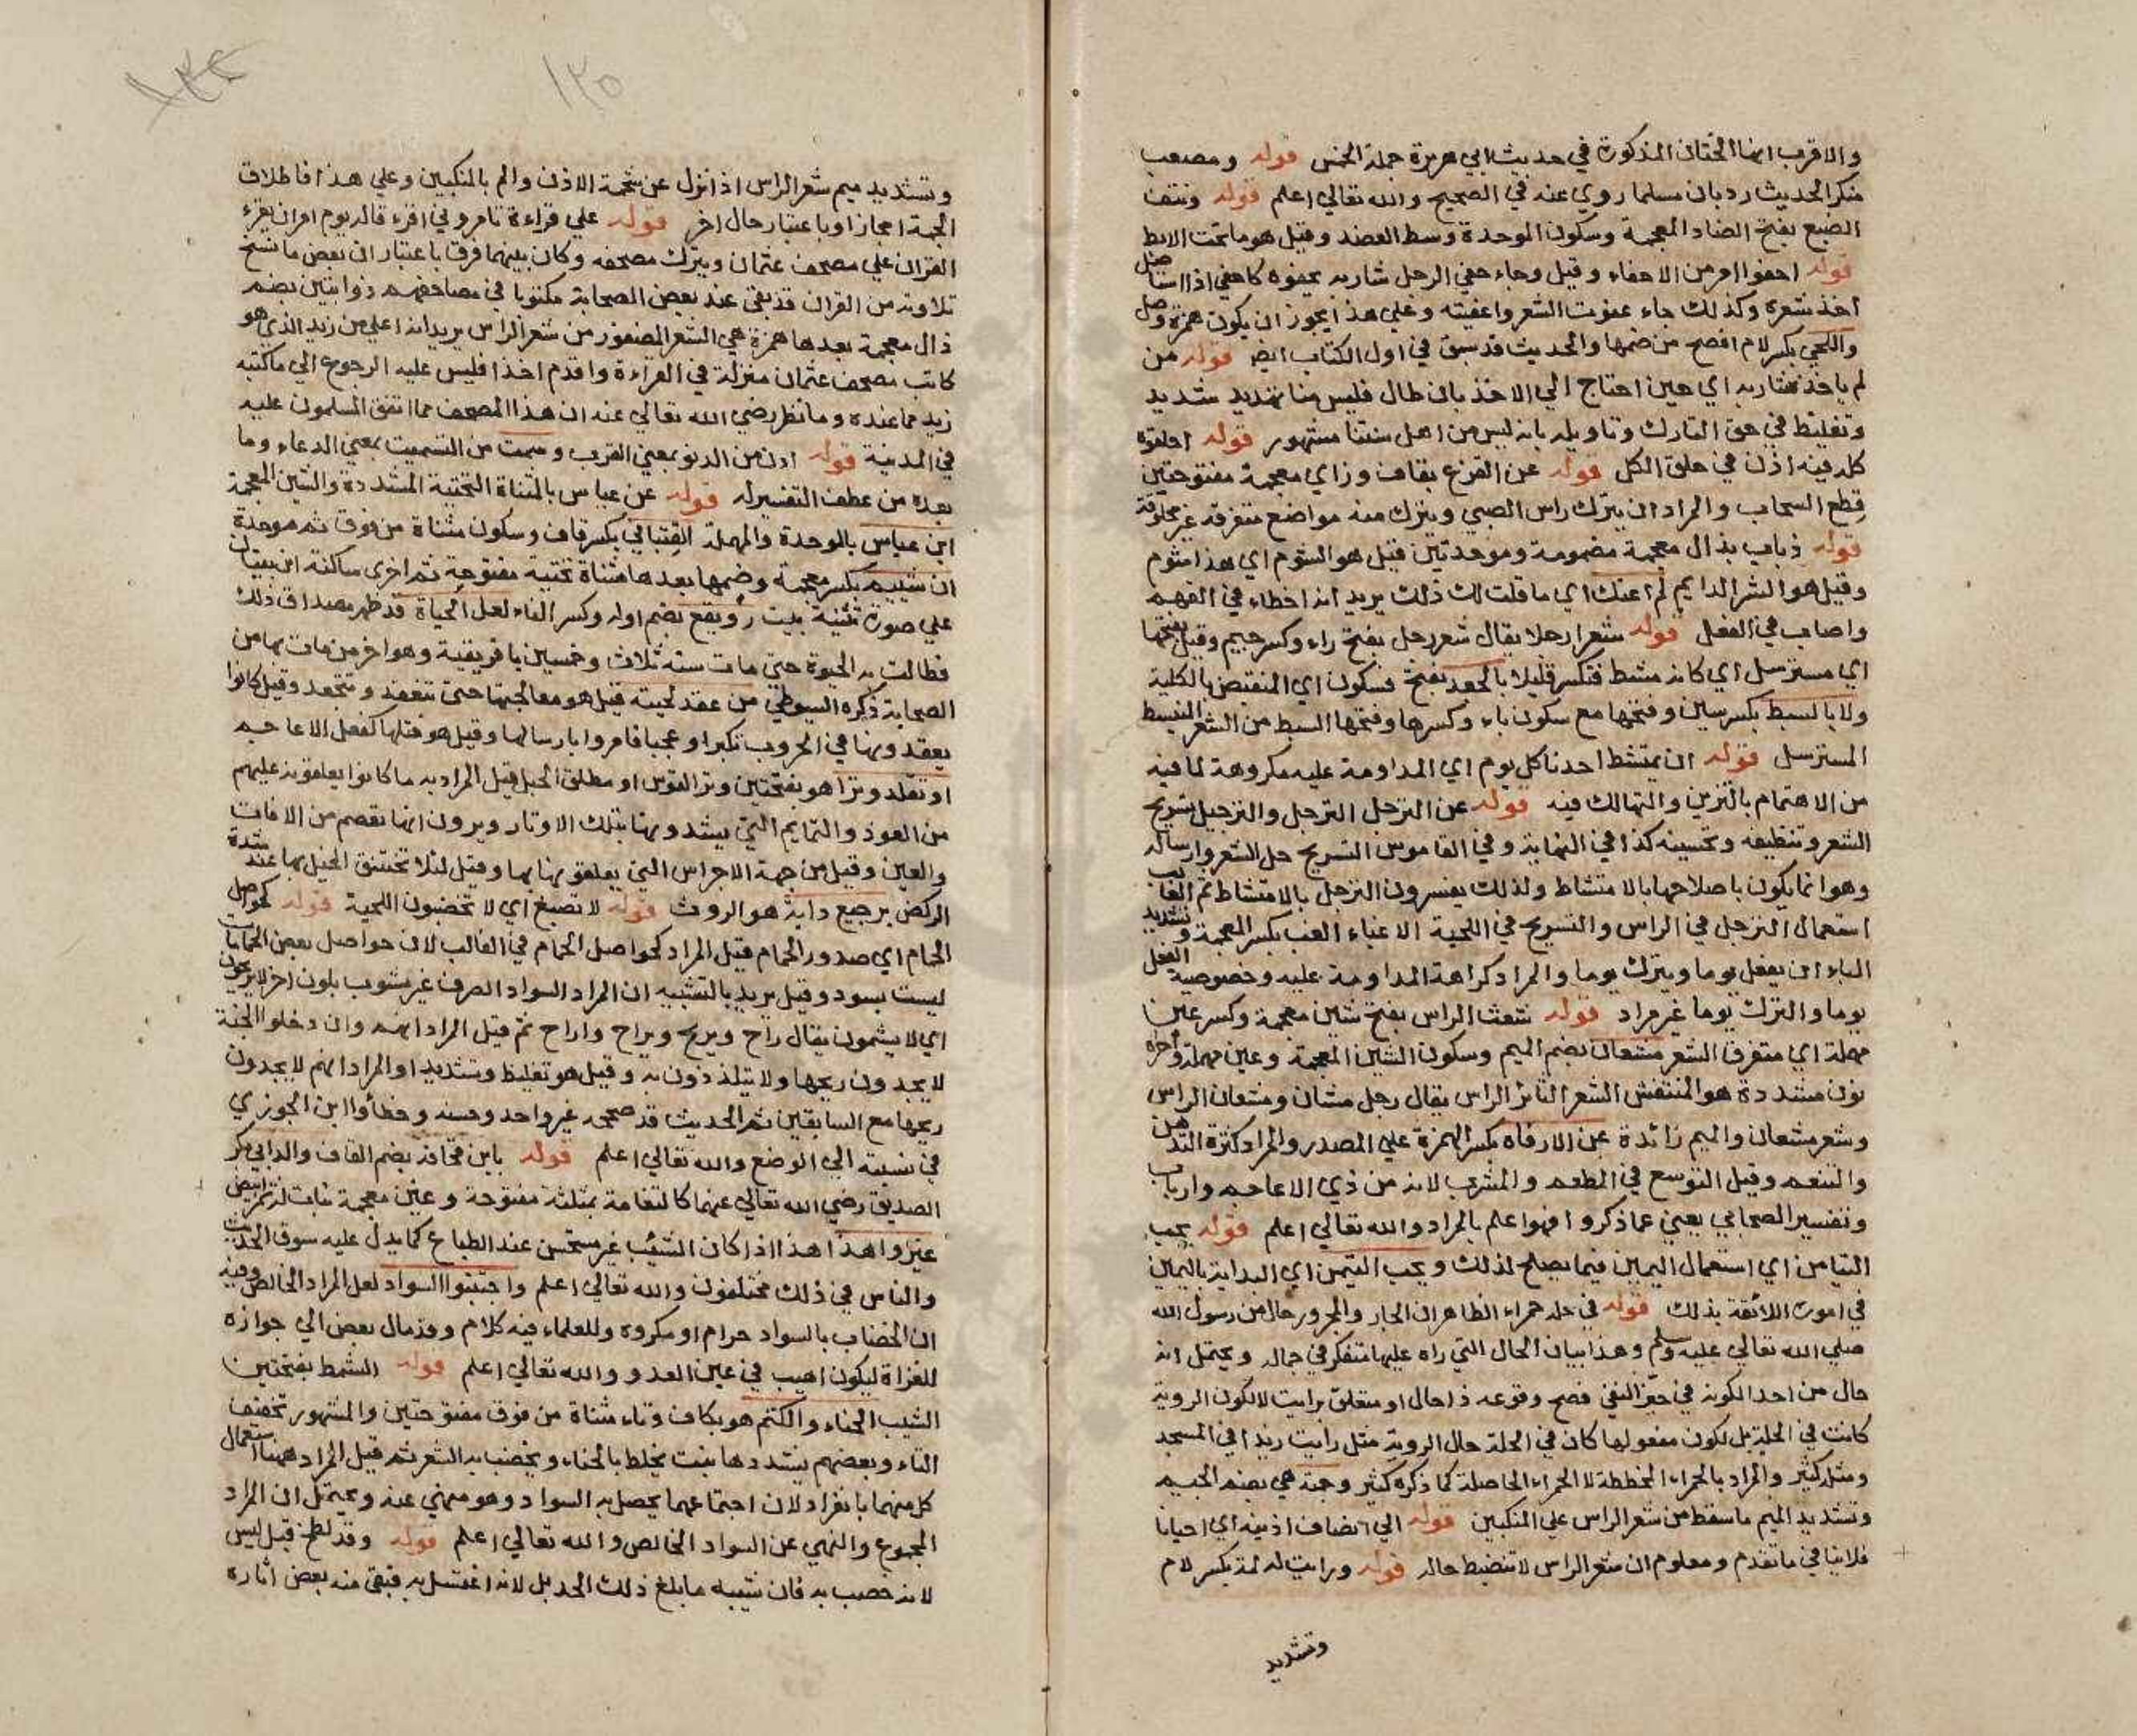 والاقرب انها الختان المذكورة في حديث ابي هريرة جملة الخمس قوله ومصعب
منكر الحديث رد بان مسلما روي عنه في الصحيح والله تعالي اعلم قوله ونتف
الضبع بفتح الضاد المعجمة وسكون الموحدة وسط العضد وقيل هو ما تحت الابط
قوله احفوا امر من الاحفاء وقيل وجاء حفي الرجل شاربه يحفوه كاحفي اذا استاصل
اخذ شعره وكذلك جاء عفوت الشعر واعفيته وعلي هذا يجوز ان يكون همزة وصل
واللحي بكسر لام افصح من ضمها والحديث قد سبق في اول الكتاب ايض قوله من
لم ياخذ شاربه اي حين احتاج الي الاخذ بان طال فليس منا تهديد شديد
وتغليظ في حق التارك وتاويله بانه ليس من اهل سنتنا مشهور قوله احلقوه
كله فيه اذن في حلق الكل قوله عن القزع بقاف وزاي معجمة مفتوحتين
قطع السحاب والمراد ان يترك راس الصبي ويترك منه مواضع متفرقه غير محلوقة
قوله ذباب بذال معجمة مضمومة وموحدتين قيل هو الشوم اي هذا مشوم
وقيل هو الشر الدايم لم اعنك اي ما قلت لك ذلك يريد انه اخطاء في الفهم
واصاب في الفعل قوله شعرا رجلا يقال شعر رجل بفتح راء وكسر جيم وقيل بفتحها
اي مسترسل اي كانه مشط فتكسر قليلا بالجعد بفتح فسكون اي المنقبض بالكلية
ولا بالسبط بكسر سين وفتحها مع سكون باء وكسرها وفتحها السبط من الشعر المنبسط
المسترسل قوله ان يمتشط احدنا كل يوم اي المداومة عليه مكروهة لما فيه
من الاهتمام بالتزين والتهالك فيه قوله عن الترجل الترجل والترجيل تسريح
الشعر وتنظيفه وتحسينه كذا في النهاية وفي القاموس التسريح حل الشعر وارساله
وهو انما يكون باصلاحها بالامتشاط ولذلك يفسرون الترجل بالامتشاط ثم الغالب
استعمال الترجل في الراس والتسريح في اللحية الا غباء الغب بكسر المعجمة وتشديد
الباء ان يفعل يوما ويترك يوما والمراد كراهة المداومة عليه وخصوصية الفعل
يوما والترك يوما غير مراد قوله شعث الراس بفتح شين معجمة وكسر عين
مهملة اي متفرق الشعر مشعان بضم الميم وسكون الشين المعجمة وعين مهملة واخره
نون مشددة هو المنتفش الشعر الثائر الراس يقال رجل مشان ومشعان الراس
وشعر مشعان والميم زائدة عن الارفاه بكسر الهمزة علي المصدر والمراد كثرة التدهن
والتنعم وقيل التوسع في المطعم والمشرب لانه من ذي الاعاجم وارباب
وتفسير الصحابي يعني عما ذكروا فهو اعلم بالمراد والله تعالي اعلم قوله يحب
التيامن اي استعمال اليمين فيما يصلح لذلك ويحب التيمن اي البداية باليمين
في اموره اللائقة بذلك قوله في حلة حمراء الظاهر ان الجار والمجرور حال من رسول الله
صلي الله تعالي عليه وسلم وهذا بيان الحال التي راه عليها متفكر في جماله ويحتمل انه
حال من احدا لكونه في حيز النفي فصح وقوعه ذا حال او متعلق برايت لا لكون الروية
كانت في الحلة بل لكون مفعولها كان في الحلة حال الروية مثل رايت زيدا في المسجد
ومثله كثير والمراد بالحمراء المخططة لا الحمراء الخاصلة كما ذكره كثير وجمة هي بضم الجيم
وتشديد الميم ما سقط من شعر الراس علي المنكبين قوله الي انصاف اذنيه اي احيانا
فلا ينافي ما تقدم ومعلوم ان شعر الراس لا تنضبط حاله قوله ورايت له لمة بكسر لام
وتشديد
١٢٥
وتشديد ميم شعر الراس اذا نزل عن شحمة الاذن والم بالمنكبين وعلي هذا فاطلاق
الجمة مجازا وباعتبار حال اخر قوله علي قراءة تامروني اقرء قاله يوم امر ان يقرء
القران علي مصحف عثمان ويترك مصحفه وكان بينهما فرق باعتبار ان بعض ما نسخ
تلاوته من القران قد بقي عند بعض الصحابة مكتوبا في مصاحفهم ذوابتين بضم
ذال معجمة بعدها همزة هي الشعر المضفور من شعر الراس يريد انه اعلي من زيد الذي هو
كاتب مصحف عثمان منزلة في القراءة واقدم اخذا فليس عليه الرجوع الي ما كتبه
زيد مما عنده وما نظر رضي الله تعالي عنه ان هذا المصحف مما اتفق المسلمون عليه
في المدينة قوله ادن من الدنو بمعني القرب وسمت من التسميت بمعني الدعاء وما
بعده من عطف التفسير له قوله عن عياس بالمثناة التحتية المشددة والشين المعجمة
ابن عباس بالموحدة والمهملة القتباني بكسر قاف وسكون مثناة من فوق ثم موحدة
ان شييم بكسر معجمة وضمها بعدها مثناة تحتية مفتوحة ثم اخري ساكنة ابن بيتان
علي صورة تثنية بيت رويفع بضم اوله وكسر الفاء لعل الحياة قد ظهر مصداق ذلك
فطالت به الحيوة حتي مات سنه ثلاث وخمسين بافريقية وهو اخر من مات بها من
الصحابة ذكره السيوطي من عقد لحيته قيل هو معالجتها حتي تنعقد وتتجعد وقيل كانوا
يعقدونها في الحروب تكبرا وعجبا فامروا بارسالها وقيل هو فتلها كفعل الاعاجم
او تقلد وترا هو بفتحتين وتر القوس او مطلق الحبل قيل المراد به ما كانوا يعلقونه عليهم
من العوذ والتمايم التي يشدونها بتلك الاوتار ويرون انها تعصم من الافات
والعين وقيل من جهة الاجراس التي يعلقونها بها وقيل لئلا تختنق الخيل بها عند شدة
الركض برجيع دابة هو الروث قوله لا تصبغ اي لا تخضبون اللحية قوله كحواصل
الحمام اي صدور الحمام قيل المراد كحواصل الحمام في الغالب لان حواصل بعض الحمامات
ليست بسود وقيل يريد بالتشبيه ان المراد السواد الصرف غير مشوب بلون اخر لا يريحون
اي لا يشمون يقال راح ويريح ويراح واراح ثم قيل المراد انهم وان دخلوا الجنة
لا يجدون ريحها ولا يتلذذون به وقيل هو تغليظ وتشديد او المراد انهم لا يجدون
ريحها مع السابقين ثم الحديث قد صححه غير واحد وحسنه وخطأوا ابن الجوزي
في نسبته الي الوضع والله تعالي اعلم قوله بابن قحافة بضم القاف والد ابي بكر
الصديق رضي الله تعالي عنهما كالثغامة بمثلثة مفتوحة وغين معجمة نبات له ثمر ابيض
غيروا هذا هذا اذا كان الشيب غير مستحسن عند الطباع كما يدل عليه سوق الحديث
والناس في ذلك مختلفون والله تعالي اعلم واجتنبوا السواد لعل المراد الخالص وفيه
ان الخضاب بالسواد حرام او مكروه وللعلماء فيه كلام وقد مال بعض الي جوازه
للغزاة ليكون اهيب في عين العدو والله تعالي اعلم قوله الشمط بفتحتين
الشيب الحناء والكتم هو بكاف وتاء مثناة من فوق مفتوحتين والمشهور تخفيف
التاء وبعضهم يشددها نبت يخلط بالحناء ويخضب به الشعر ثم قيل المراد ههنا استعمال
كل منهما بانفراد لان اجتماعهما يحصل به السواد وهو منهي عنه ويحتمل ان المراد
المجموع والنهي عن السواد الخالص والله تعالي اعلم قوله وقد لطخ قيل ليس
لانه خصب به فان شيبه ما بلغ ذلك الحد بل لانه اغتسل به فبقي منه بعض اثاره